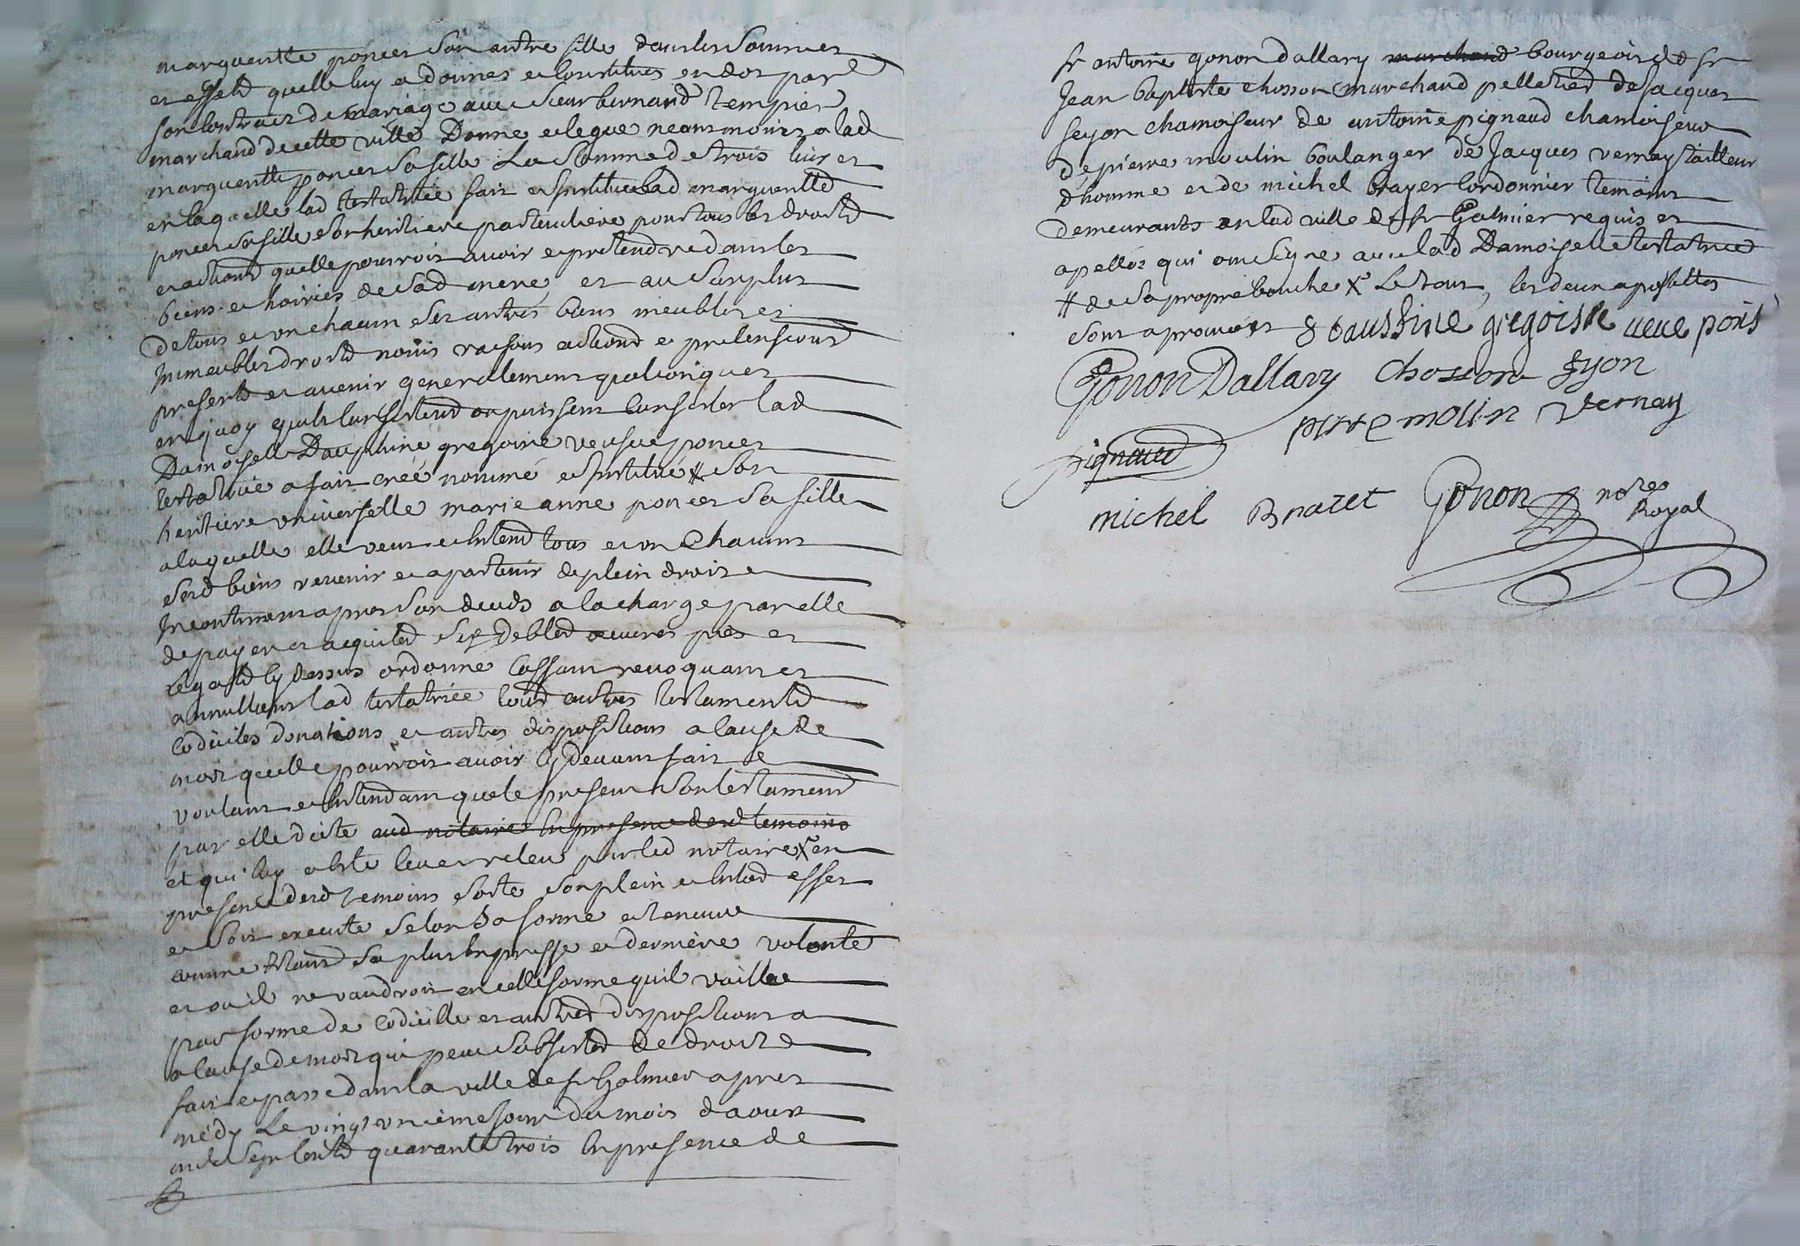 margueritte poncet son autre fille dans les sommes
et effetd quelle luy a donnes et constitues en dot par
son contract de mariage avec sieur bernard tempier
marchand de cette ville Donne et legue neanmoins a lad
margueritte poncet sa fille La somme de trois livres
en laquelle lad testatrice fait et institue lad margueritte
poncet sa fille son heritiere particuliere pour tous les droitd
et actiond quelle pourroit avoir et pretendre dans les
biens et hoiries de sad mere et au surplus
de tous et un chacun ses autres biens meubles et
immeubles droitd noms raisons actiond et pretensiond
presentd et avenir generalement quelconques
en quoy quils consistend ou puissent consister lad
Damoiselle Dauphine gregoire veufue poncet
testatrice a fait creé nommé et institué # son
heritiere universelle marie anne poncet sa fille
a laquelle elle veut et entend tous et un chacuns
sesd biens revenir et apartenir de plein droit
incontinent apres son decéds a la charge par elle
de payer et acquited ses debted œuvres pies et
legatd cy dessus ordonne cassant revoquant et
annullant lad testatrice toutd autres testamentd
codiciles donations et autres dispositions a cause de
mort quelle pourroit avoir cy devant fait
voulant et entendant que le present son testament
par elle dicte aud notaire en presence desd temoins
et qui luy a este leu et releu par led notaire x en
presence desd temoins sorte son plein et entied effet
et soit execute selon sa forme et teneur
comme estand sa plus expresse et derniere volonte
et ou il ne vaudroit en celle forme quil vaille
par forme de codicille et autred dispositions a
a cause de mort qui peut subsisted de droit
fait et passe dans la ville de st Galmier apres
médy Le vingt unième jour du mois daoust
mil sept centd quarante trois en presence de
sr antoine gonon Dallary marchand bourgeois de sr
Jean baptiste chosson marchand pelletied de jacques
seyon chamoiseur de antoine pignaud chamoiseur
de pierre moulin boulanger de Jacques vernay tailleur
dhomme et de michel brayet cordonnier temoins
demeurants en lad ville de st Galmier requis et
apellés qui ont signe avec lad Damoiselle testatrice
# de sa propre bouche x Le tout, les deux apostilles
sont aprouvees dausfine gregoisre veue pons
Gonon Dallary chosson Syon
pignaud pierre molin Vernay
michel Brazet Gonon nore Royal